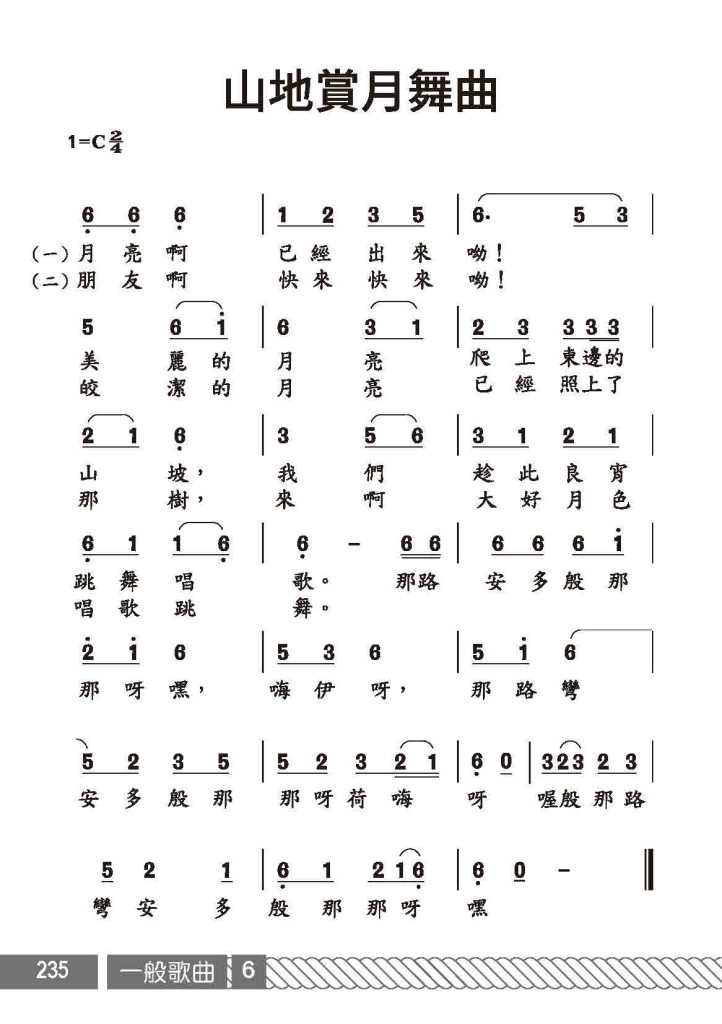 山地賞月舞曲
1=C 2/4
6 6 6 | 1 2 3 5 | 6· 5 3 |
(一)月亮啊 已經出來 呦!
(二)朋友啊 快來快來 呦!
5 6 1 | 6 3 1 | 2 3 3 3 3 |
美麗的 月亮 爬上東邊的
皎潔的 月亮 已經照上了
2 1 6 | 3 5 6 | 3 1 2 1 |
山坡, 我們 趁此良宵
那樹, 來啊 大好月色
6 1 1 6 | 6 – 6 6 | 6 6 6 1 |
跳舞唱 歌。 那路 安多殷那
唱歌跳 舞。
2 1 6 | 5 3 6 | 5 1 6 |
那呀嘿, 嗨伊呀, 那路彎
5 2 3 5 | 5 2 3 2 1 | 6 0 | 3 2 3 2 3 |
安多殷那 那呀荷嗨 呀 喔殷那路
5 2 1 | 6 1 2 1 6 | 6 0 –
彎安多 殷那那呀 嘿
235 一般歌曲 6